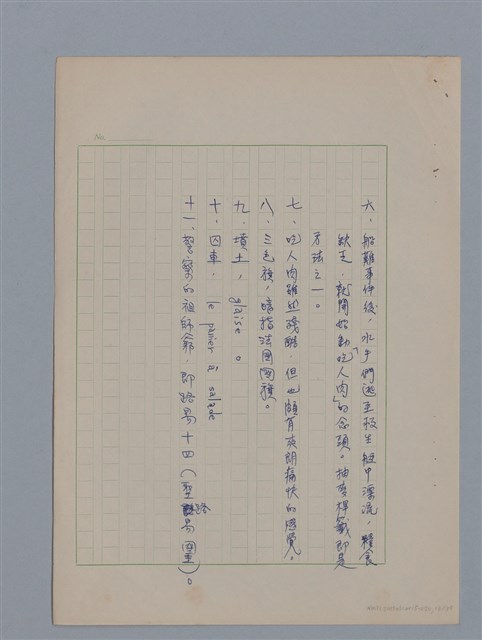 No.
六、船難事件後，水手們逃至救生艇中漂流，糧食
缺乏，就開始動「吃人肉」的念頭。抽麥桿籤即是
方法之一。
七、吃人肉雖然殘酷，但也頗有爽朗痛快的感覺。
八、三色旗，暗指法國國旗。
九、墳土，glaise。
十、囚車，le panier à salade
十一、警察的祖師爺，即路易十四（聖路易國王）。